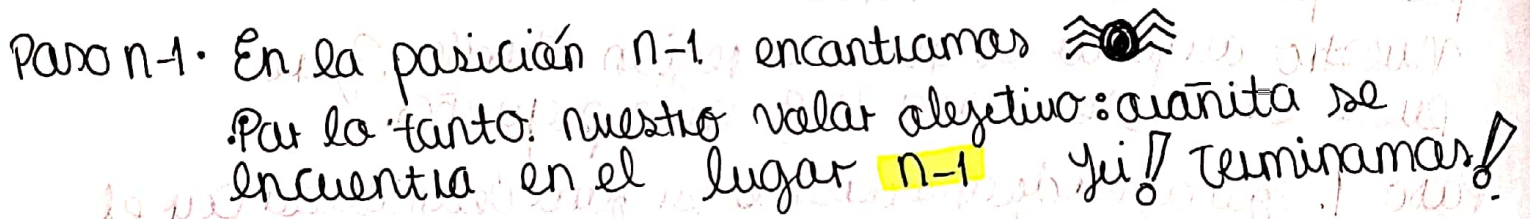 Paso n-1. En la posición n-1 encontramos
Por lo tanto nuestro valor objetivo: arañita se
encuentra en el lugar n-1 Yei! Terminamos!